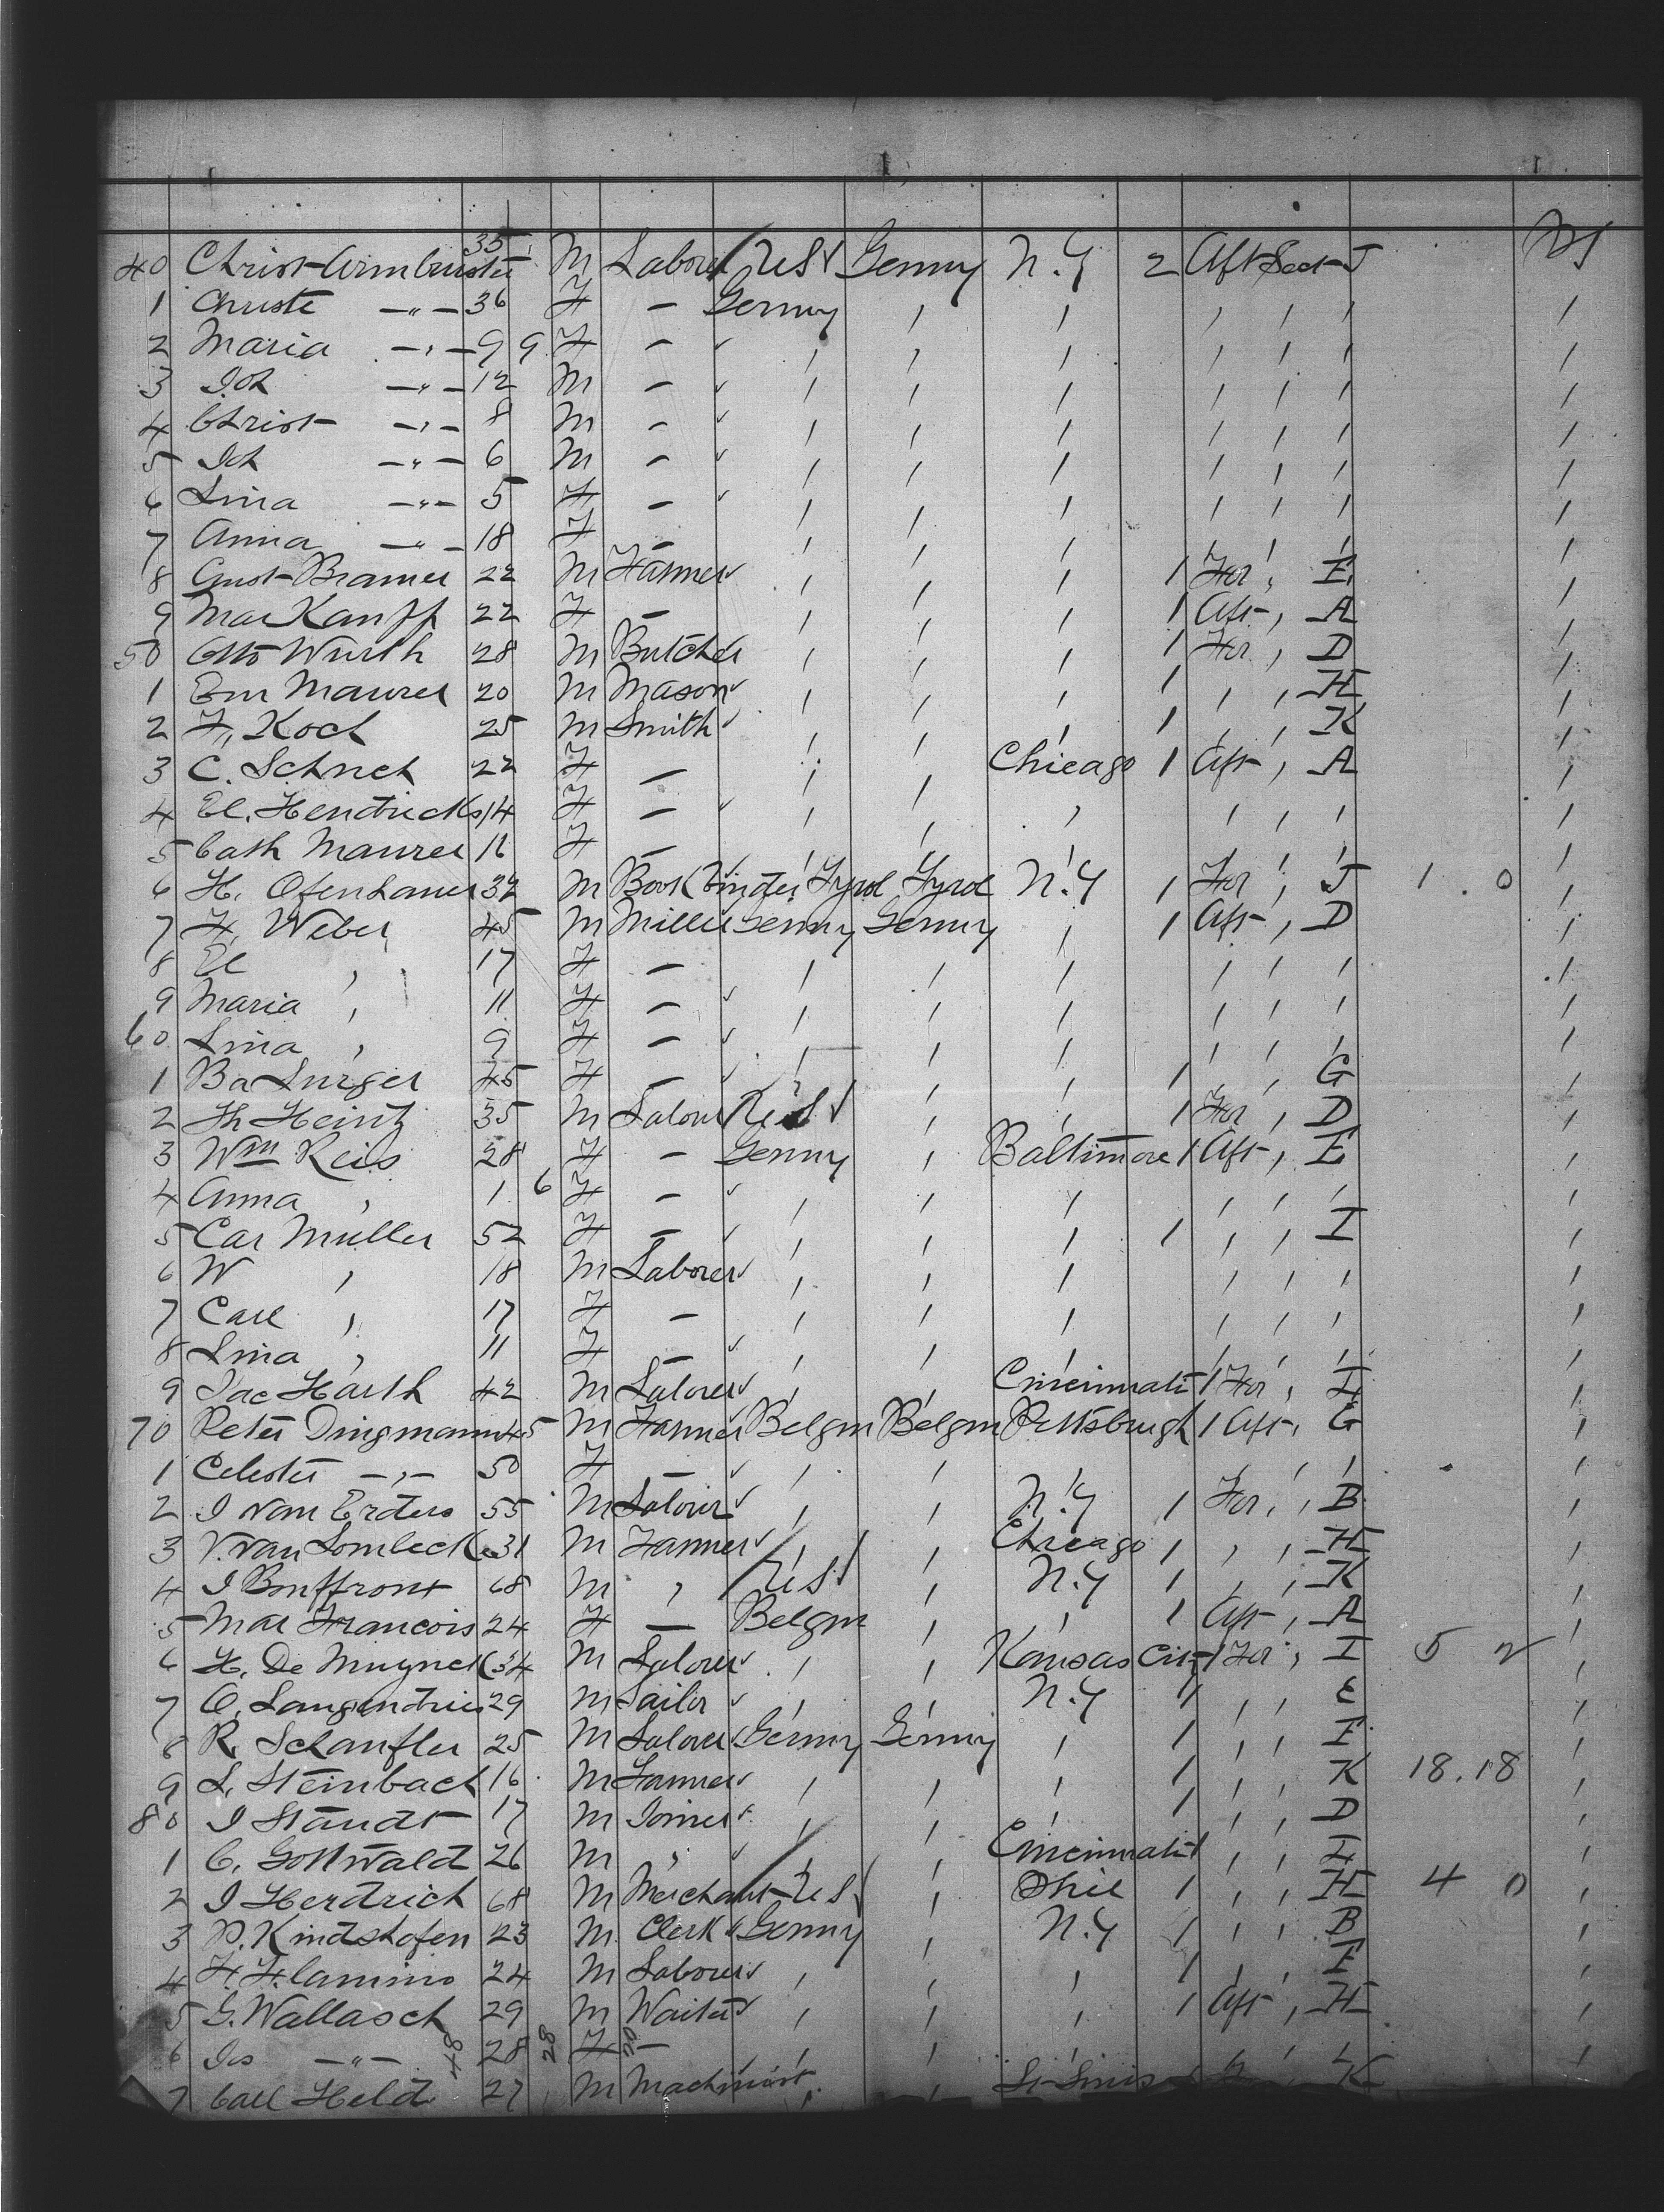 40 Christ Armbruster 35 M Laborer U.S. Germy N.Y 2 Aft Sect J
1 Christe —"— 36 F — Germy ' ' ' ' '
2 Maria —"— 9 9 F — ' ' ' ' ' '
3 Joh —"— 12 M — ' ' ' ' ' '
4 Christ —"— 8 M — ' ' ' ' ' '
5 Joh —"— 6 M — ' ' ' ' ' '
6 Lina —"— 5 F — ' ' ' ' ' '
7 Anna —"— 18 F — ' ' ' ' ' '
8 Gust Bramer 22 M Farmer ' ' ' 1 For ' E '
9 Mar Kanff 22 F — ' ' ' 1 Aft ' A '
50 Otto Wurth 28 M Butcher ' ' ' 1 For ' D '
1 Em Maurer 20 M Mason ' ' ' 1 ' ' H '
2 F. Koch 25 M Smith ' ' ' 1 ' ' K '
3 C. Schneh 22 F — ' ' Chicago 1 Aft ' A '
4 El. Hendricks 14 F — ' ' ' ' ' ' '
5 Cath Maurer 16 F — ' ' ' ' ' ' '
6 H. Ofenhauer 32 M Book Binder Tyrol Tyrol N.Y 1 For ' J 1 . 0 '
7 F. Weber 45 M Miller Germy Germy ' 1 Aft ' D '
8 El ' 17 F — ' ' ' ' ' ' '
9 Maria ' 11 F — ' ' ' ' ' ' '
60 Lina ' 9 F — ' ' ' ' ' ' '
1 Ba Lurger 45 F — ' ' ' 1 ' ' G '
2 Th Heintz 35 M Labour U.S. ' ' 1 For ' D '
3 Wm Reis 28 F — Germy ' Baltimore 1 Aft ' E '
4 Anna ' 1 6 F — ' ' ' ' ' ' '
5 Car Muller 52 F — ' ' ' 1 ' ' I '
6 W ' 18 M Laborer ' ' ' ' ' ' '
7 Carl ' 17 F — ' ' ' ' ' ' '
8 Lina ' 11 F — ' ' ' ' ' ' '
9 Jac Harth 42 M Laborer ' ' Cincinnati 1 For ' I '
70 Peter Dingmann 45 M Farmer Belgm Belgm Pittsburgh 1 Aft ' G '
1 Celeste —"— 50 F — ' ' ' ' ' ' '
2 J van Erders 55 M Laborer ' ' N.Y 1 For ' B '
3 V. van Lombeck 31 M Farmer ' ' Chicago 1 ' ' H '
4 J Bouffront 68 M ' U.S. ' N.Y 1 ' ' K '
5 Mar Francois 24 F — Belgm ' ' 1 Aft ' A '
6 H. De Muynck 34 M Laborer ' ' Kansas City 1 For ' I 5 2 '
7 O. Langendries 29 M Sailor ' ' N.Y 1 ' ' E '
8 R. Schaufler 25 M Laborer Germy Germy ' 1 ' ' F '
9 L. Steinbach 16 M Farmer ' ' ' 1 ' ' K 18.18 '
80 J Staudt 17 M Joiner ' ' ' 1 ' ' D '
1 C. Gottwald 26 M ' ' ' Cincinnati 1 ' ' I '
2 J Herdrich 68 M Merchant U.S. ' Ohio 1 ' ' H 4 0 '
3 P. Kindshofen 23 M Clerk Germy ' N.Y 1 ' ' B '
4 F. Flamino 24 M Laborer ' ' ' 1 ' ' F '
5 G. Wallasch 29 M Waiter ' ' ' 1 Aft ' H '
6 Jos —"— 28 F — ' ' ' ' ' ' '
7 Carl Held 27 M Machinist ' ' St Louis K